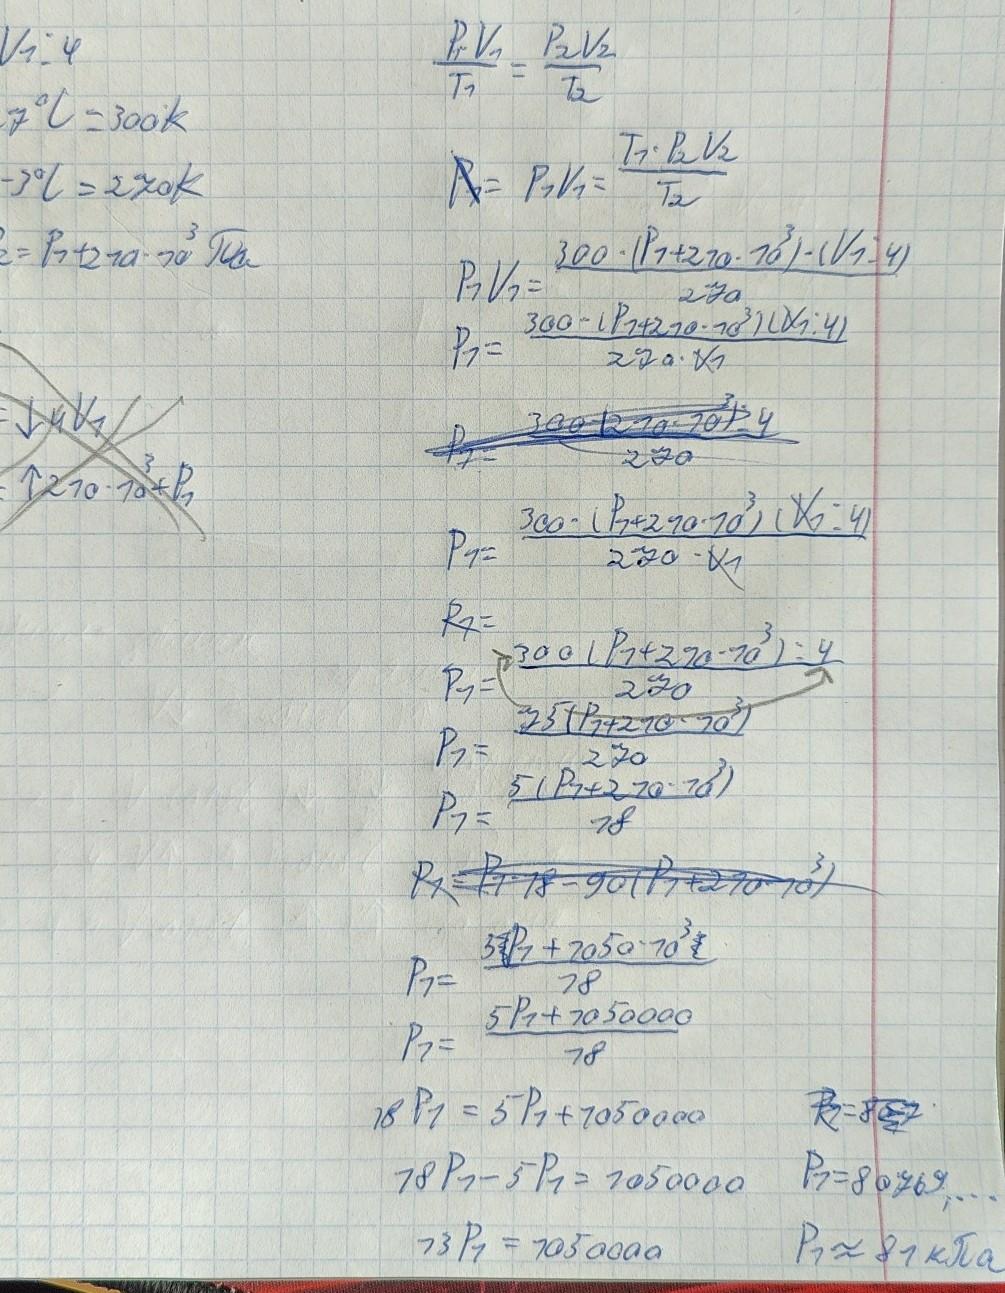 V₁:4
7°C = 300K
-3°C = 270K
= P₁+210·10³ Па
= ↓4V₁
= ↑210·10³+P₁
P₁V₁/T₁ = P₂V₂/T₂
P₁= P₁V₁= T₁·P₂V₂/T₂
P₁V₁= 300·(P₁+210·10³)·(V₁:4)/270
P₁= 300·(P₁+210·10³)(V₁:4)/270·V₁
P₁= 300(210·10³):4/270
P₁= 300·(P₁+210·10³)(V₁:4)/270·V₁
P₁=
P₁= 300(P₁+210·10³):4/270
P₁= 75(P₁+210·10³)/270
P₁= 5(P₁+210·10³)/18
P₁= P₁·18=90(P₁+210·10³)
P₁= 5P₁+1050·10³/18
P₁= 5P₁+1050000/18
18P₁ = 5P₁+1050000
18P₁-5P₁= 1050000 P₁=80769,....
13P₁ = 1050000 P₁≈81кПа